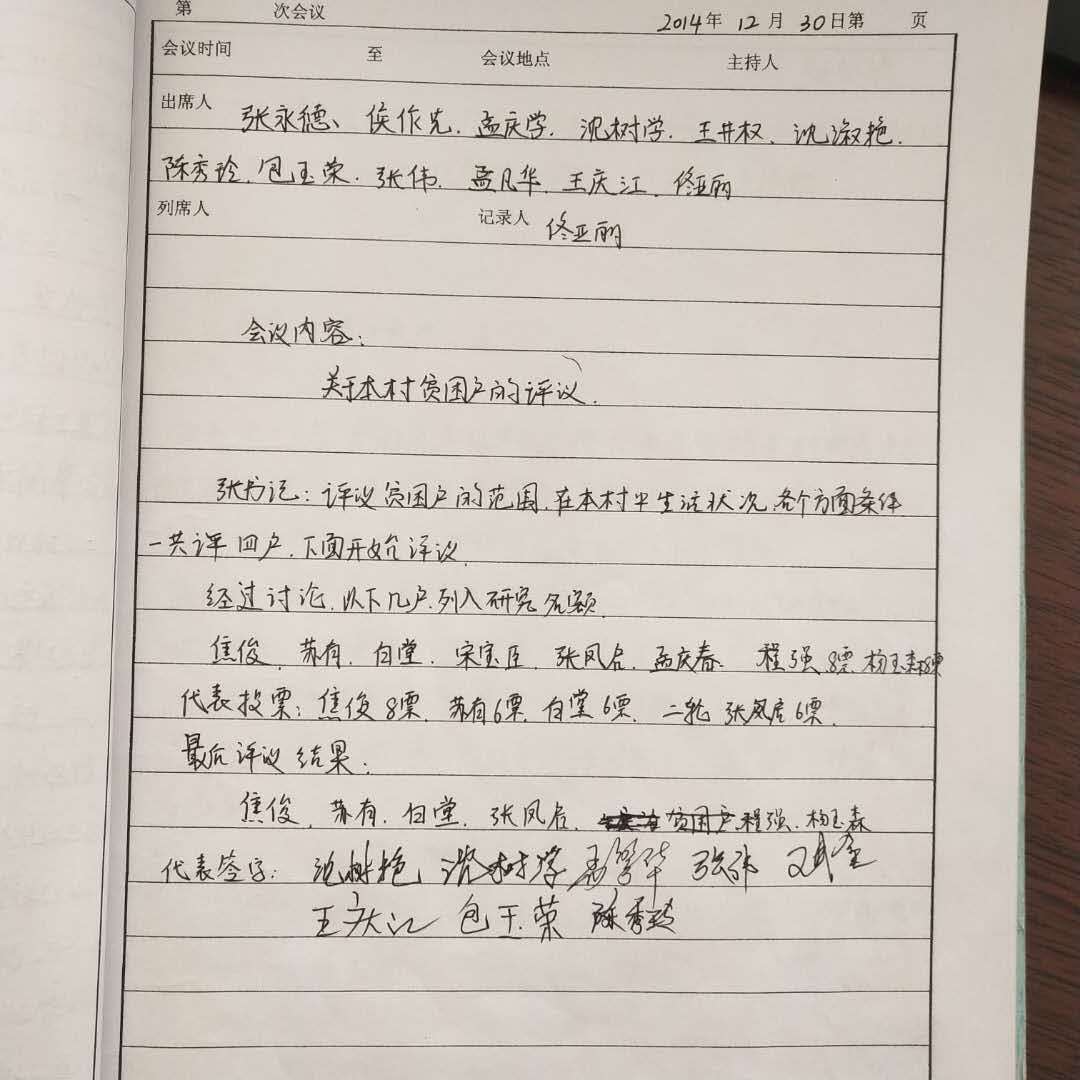 第 次会议 2014年 12月 30日第 页
会议时间 至 会议地点 主持人
出席人 张永德、侯作先.孟庆学.沈树学.王井权.沈淑艳.
陈秀玲.包玉荣.张伟.孟凡华.王庆江.佟亚丽
列席人 记录人 佟亚丽
会议内容:
关于本村贫困户的评议.
张书记:评议贫困户的范围.在本村中生活状况.各个方面条件
一共评四户.下面开始评议.
经过讨论.以下几户.列入研究名额.
焦俊.苏有.白堂.宋宝臣.张凤启.孟庆春. 程强8票.杨玉森8票
代表投票:焦俊8票.苏有6票.白堂6票. 二轮 张凤启6票.
最后评议结果:
焦俊.苏有.白堂.张凤启. 贫困户.程强.杨玉森
代表签字: 沈树学 张伟
王庆江 包玉荣 陈秀玲